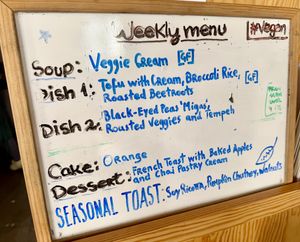 Weekly menu
#vegan
Soup: Veggie Cream [GF]
Dish 1: Tofu with Cream, Broccoli Rice, [GF]
Roasted Beetroots
Dish 2: Black-Eyed Peas "Migas",
Roasted Veggies and Tempeh
Cake: Orange
Dessert: French Toast with Baked Apples
and Chai Pastry Cream
SEASONAL TOAST: Soy Ricotta, Pumpkin Chutney, walnuts